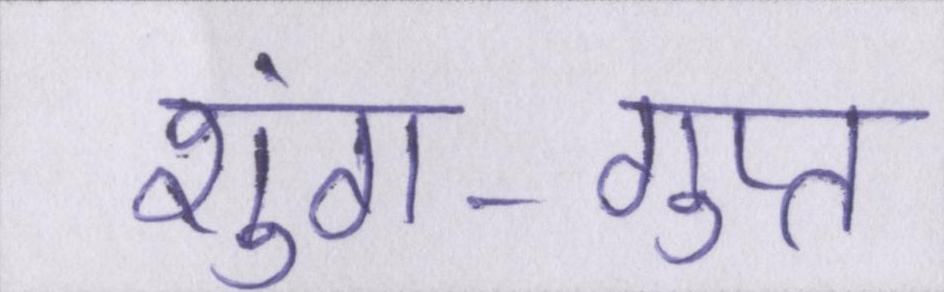 शुंग-गुप्त